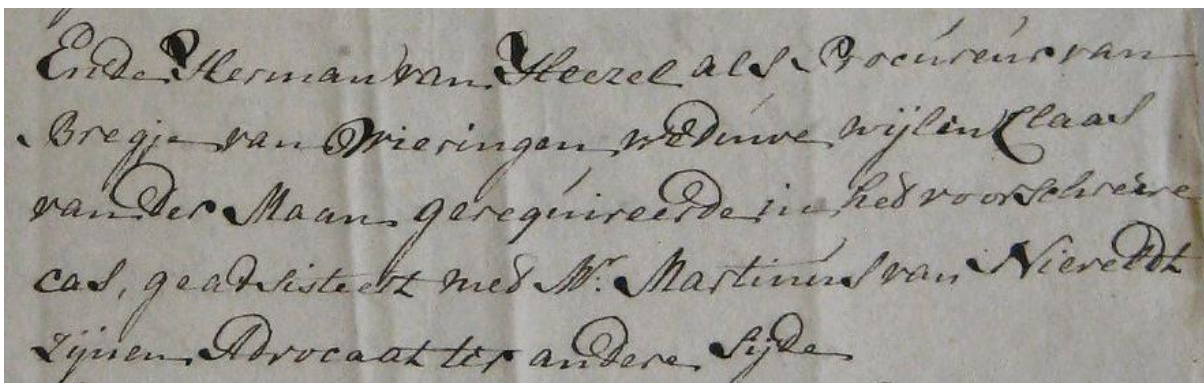 Ende Herman van Heezel als Procureur van
Bregje van Wieringen weduwe wijlen Claas
van der Maan gerequireerde in het voorschreve
cas, geadsisteert met Mr. Martinus van Nieveldt
zijnen Advocaat ter andere sijde